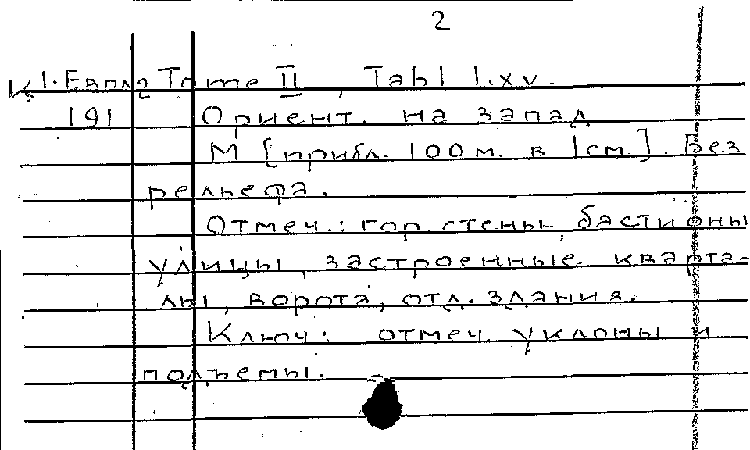 2
Tome II, Tabl I.XV.
191 Ориент. на запад
М [прибл. 100 м. в 1 см.]. Без
рельефа.
Отмеч.: гор стены, бастионы
улицы, застроенные кварта-
лы, ворота, отд. здания.
Ключ: отмеч. уклоны и
подъемы.